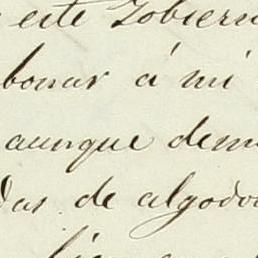 este Gobiern
bonar á mi
aunque dem
das de algodo